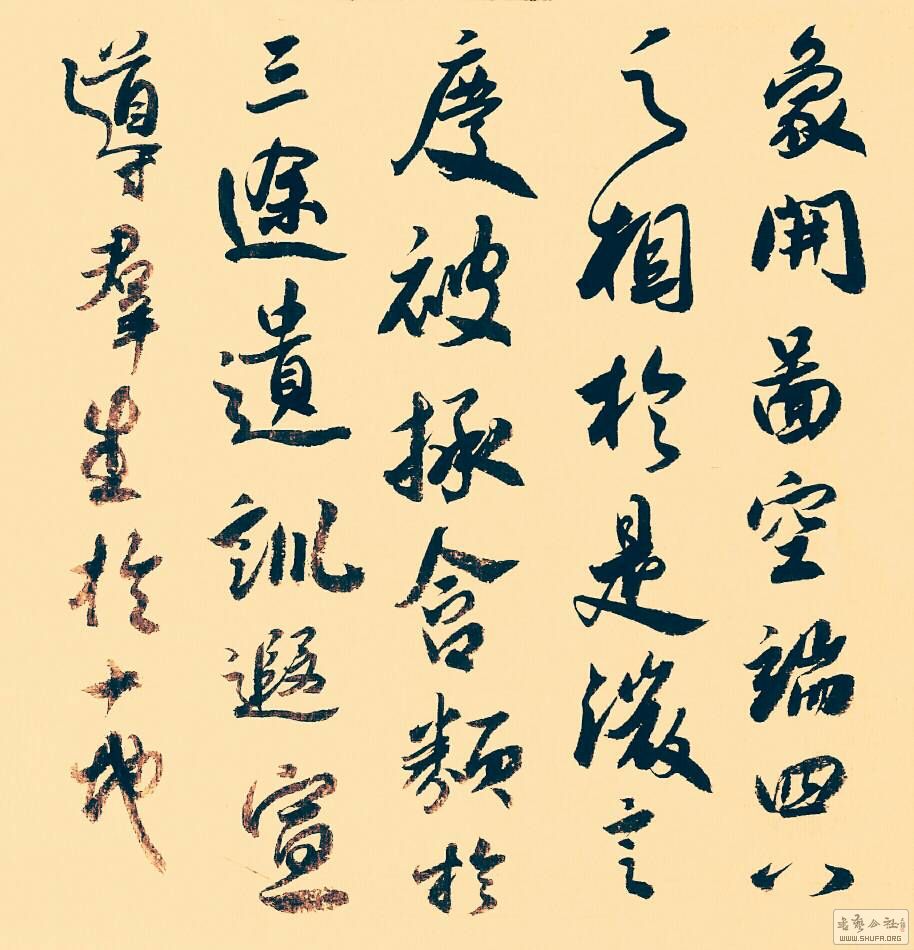 象開圖空端四八
之相於是微言
廣被拯含類於
三途遺訓遐宣
導羣生於十地
書藝公社
WWW.SHUFA.ORG